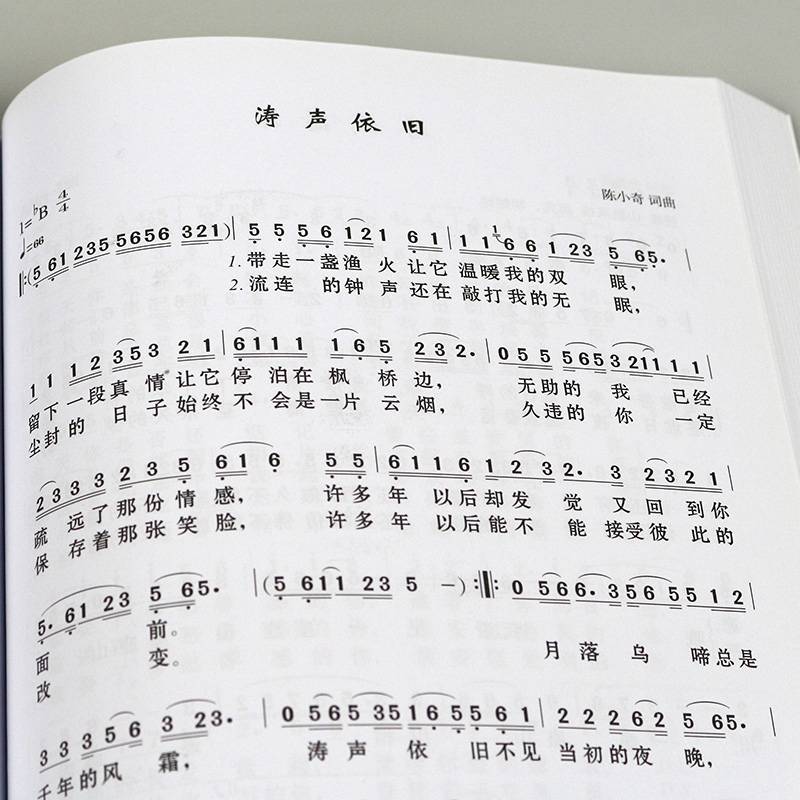 涛声依旧
陈小奇 词曲
1=♭B 4/4
♩=66
‖:(5 61 235 5656 321)| 5 5 5 6 121 6 1 | 1 1 6 6 1 23 5 65· |
1. 带走一盏渔 火 让它 温暖我的双 眼，
2. 流连 的钟 声 还在 敲打我的无 眠，
1 1 1 2 353 21 | 6111 165 232· | 055 5653211 11 |
留下一段真 情 让它 停 泊在 枫 桥边， 无助的 我 已经
尘封的 日 子 始终 不 会是一片 云烟， 久违的 你 一定
2333 235 616 55 | 6116 123 2· 3 2321 |
疏 远了那份情感， 许多年 以后却发 觉 又回 到你
保 存着那张笑脸， 许多年 以后能不 能 接受彼 此的
5· 6123 565· | (5 611 23 5 －):‖: 0 566·3565 512 |
面 前。 月落 乌 啼总是
改 变。
33356 323· | 0565351655561 | 22262 565· |
千年的风 霜， 涛声 依 旧不见 当初的夜 晚，